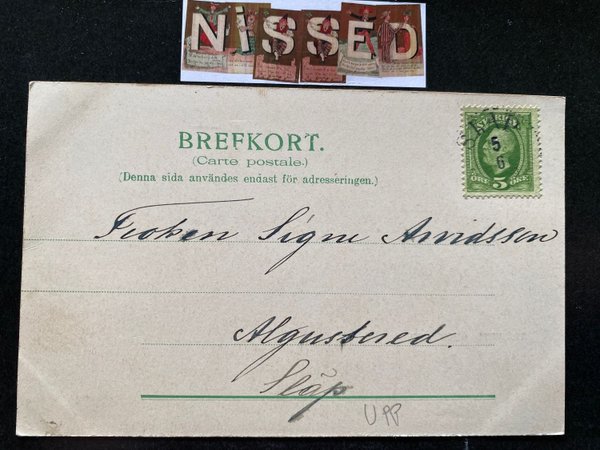 NiSSED
BREFKORT.
(Carte postale.)
(Denna sida användes endast för adresseringen.)
5
6
ÖRE 5 ÖRE
Fröken Signe Arvidsson
Algustsered.
Släp
UPP